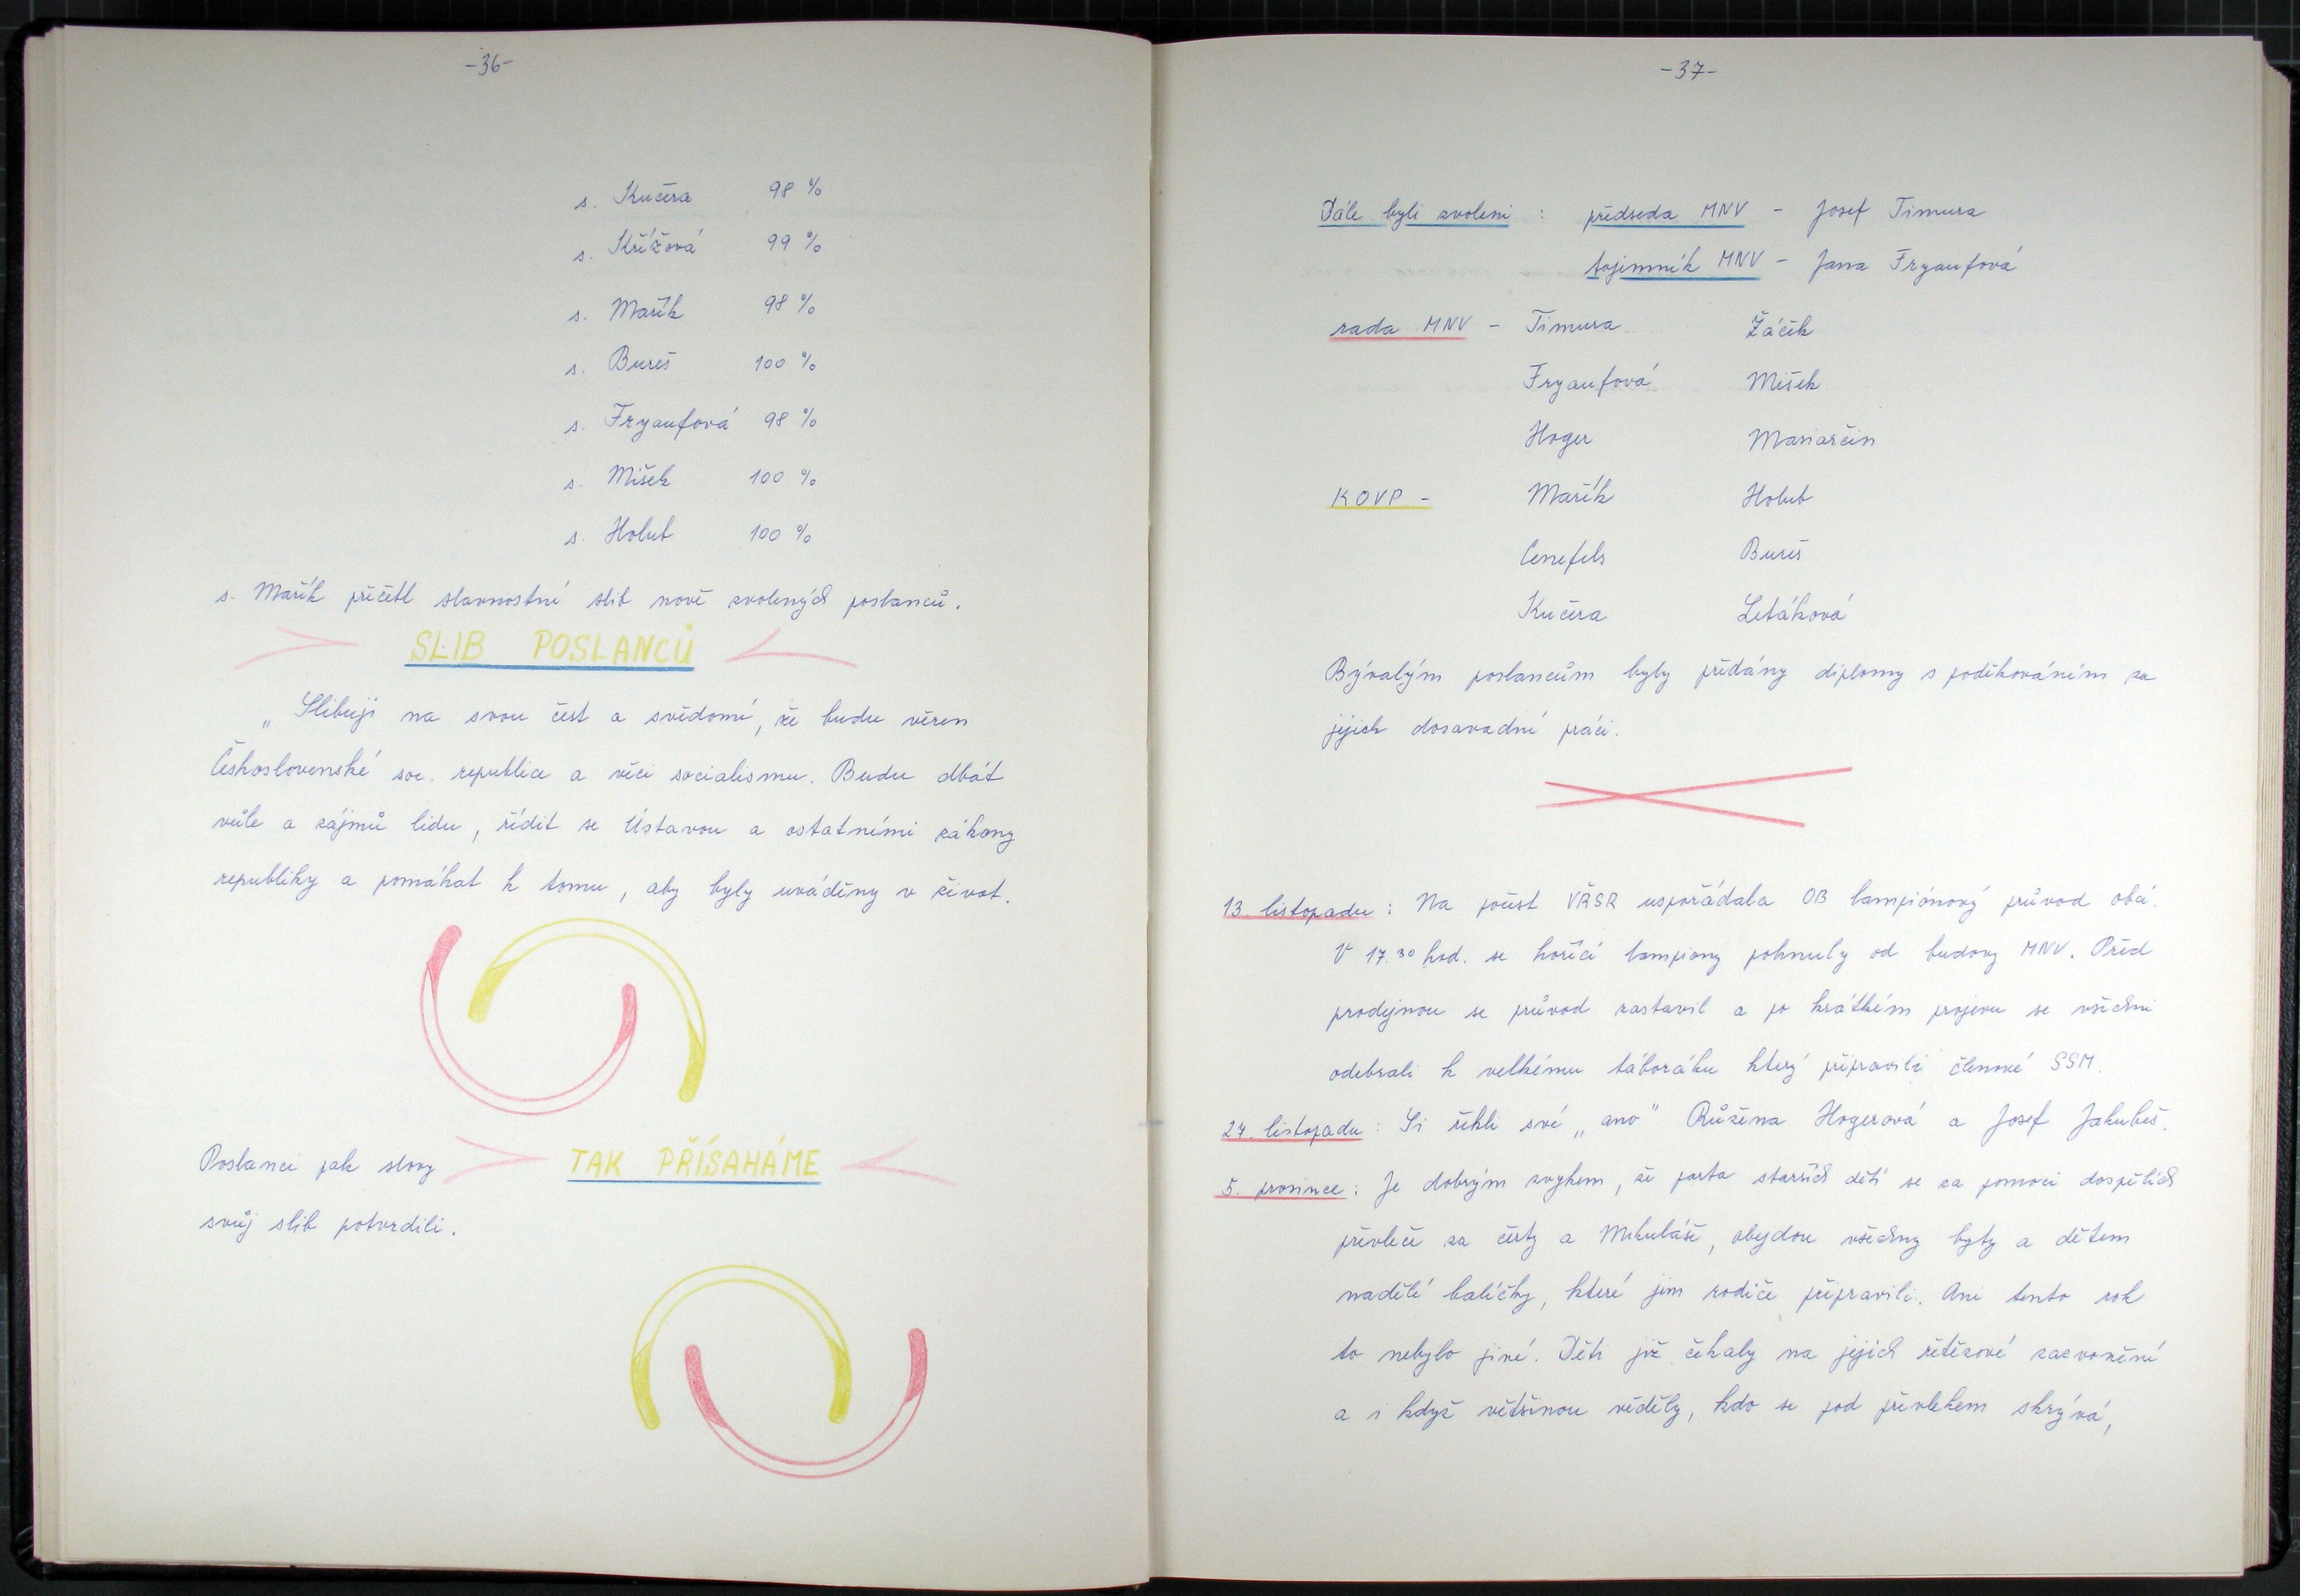 -36-
s. Kučera 98 %
s. Křížová 99 %
s. Mařík 98 %
s. Bureš 100 %
s. Fryaufová 98 %
s. Mišek 100 %
s. Holub 100 %
s. Mařík přečetl slavnostní slib nově zvolených poslanců.
SLIB POSLANCŮ
„Slibuji na svou čest a svědomí, že budu věren
Československé soc. republice a věci socialismu. Budu dbát
vůle a zájmů lidu, řídit se Ústavou a ostatními zákony
republiky a pomáhat k tomu, aby byly uváděny v život.
Poslanci pak slovy TAK PŘÍSAHÁME
svůj slib potvrdili.
-37-
Dále byli zvoleni : předseda MNV - Josef Timura
tajemník MNV - Jana Fryaufová
rada MNV - Timura Žáčik
Fryaufová Mišek
Hoger Mariarčin
KOVP - Mařík Holub
Cenefels Bureš
Kučera Letáková
Bývalým poslancům byly předány diplomy s poděkováním za
jejich dosavadní práci.
13. listopadu : Na počest VŘSR uspořádala OB lampiónový průvod obcí.
V 17.30 hod. se hořící lampiony pohnuly od budovy MNV. Před
prodejnou se průvod zastavil a po krátkém projevu se všichni
odebrali k velkému táboráku který připravili členové SSM.
27. listopadu : Si řekli své „ano" Růžena Hogerová a Josef Jakubeš.
5. prosince : Je dobrým zvykem, že parta starších dětí se za pomoci dospělých
převleče za čerty a Mikuláše, obejdou všechny byty a dětem
nadělí balíčky, které jim rodiče připravili. Ani tento rok
to nebylo jiné. Děti již čekaly na jejich řetězové zazvonění
a i když většinou věděly, kdo se pod převlekem skrývá,